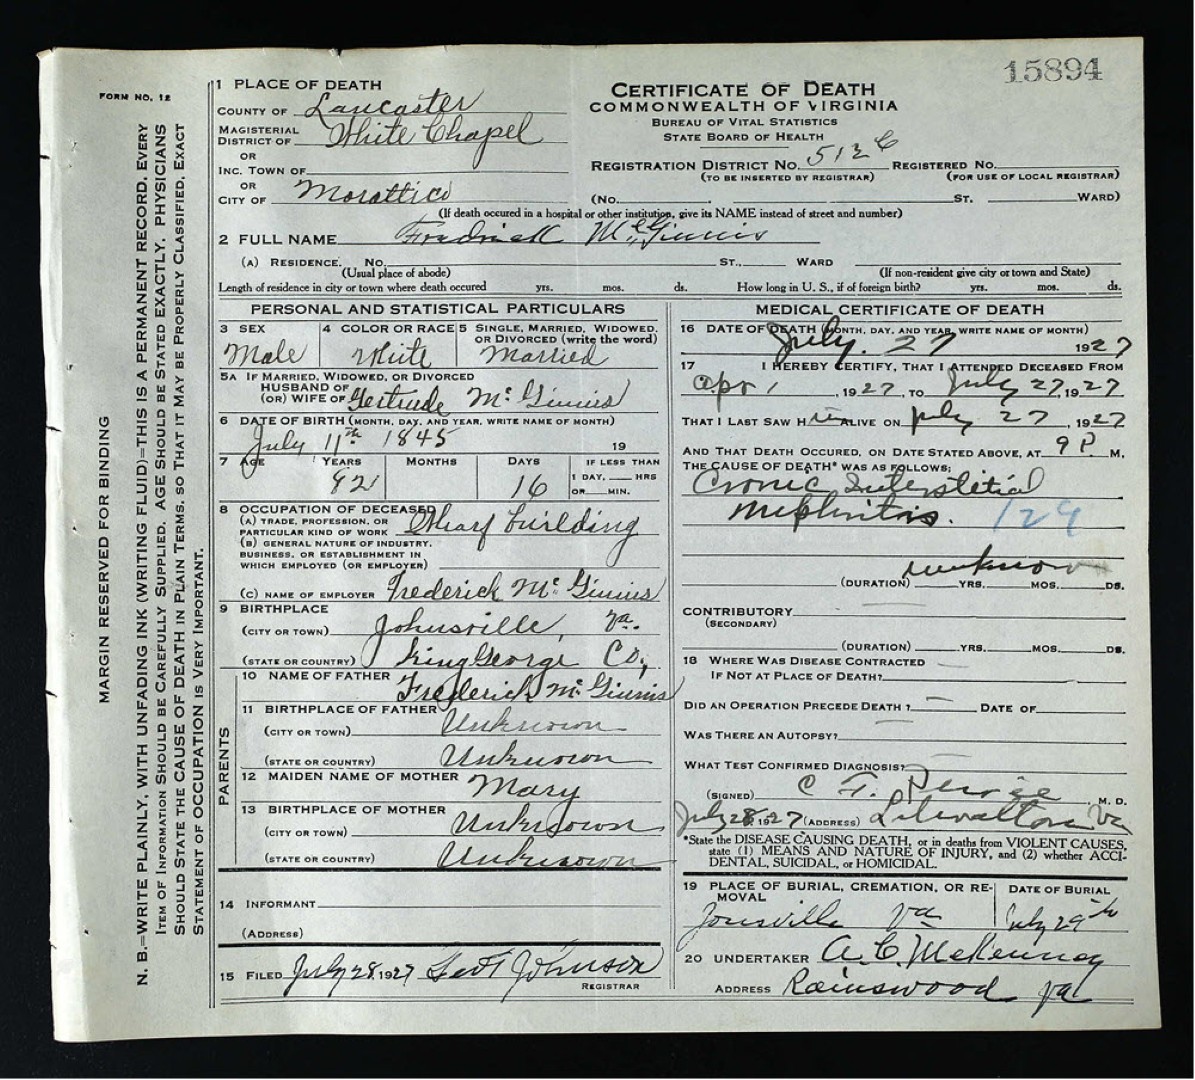 15894
FORM NO. 12
MARGIN RESERVED FOR BINDING
N. B.—WRITE PLAINLY, WITH UNFADING INK (WRITING FLUID)—THIS IS A PERMANENT RECORD. EVERY
ITEM OF INFORMATION SHOULD BE CAREFULLY SUPPLIED. AGE SHOULD BE STATED EXACTLY. PHYSICIANS
SHOULD STATE THE CAUSE OF DEATH IN PLAIN TERMS, SO THAT IT MAY BE PROPERLY CLASSIFIED. EXACT
STATEMENT OF OCCUPATION IS VERY IMPORTANT.
CERTIFICATE OF DEATH
COMMONWEALTH OF VIRGINIA
BUREAU OF VITAL STATISTICS
STATE BOARD OF HEALTH
1 PLACE OF DEATH
COUNTY OF Lancaster
MAGISTERIAL
DISTRICT OF White Chapel
OR
INC. TOWN OF
OR
CITY OF Morattico
REGISTRATION DISTRICT NO. 512 REGISTERED NO.
(TO BE INSERTED BY REGISTRAR) (FOR USE OF LOCAL REGISTRAR)
(NO. ST. WARD)
(If death occured in a hospital or other institution, give its NAME instead of street and number)
2 FULL NAME Fredrick McGinnis
(A) RESIDENCE. NO. ST., WARD
(Usual place of abode) (If non-resident give city or town and State)
Length of residence in city or town where death occured yrs. mos. ds. How long in U. S., if of foreign birth? yrs. mos. ds.
PERSONAL AND STATISTICAL PARTICULARS
3 SEX
Male
4 COLOR OR RACE
White
5 SINGLE, MARRIED, WIDOWED,
OR DIVORCED (write the word)
Married
5A IF MARRIED, WIDOWED, OR DIVORCED
HUSBAND OF
(OR) WIFE OF Gertrude McGinnis
6 DATE OF BIRTH (MONTH, DAY, AND YEAR, WRITE NAME OF MONTH)
July 11th 1845 19
7 AGE YEARS MONTHS DAYS IF LESS THAN
82 16 1 DAY, HRS
OR MIN.
8 OCCUPATION OF DECEASED
(A) TRADE, PROFESSION, OR
PARTICULAR KIND OF WORK Wharf building
(B) GENERAL NATURE OF INDUSTRY,
BUSINESS, OR ESTABLISHMENT IN
WHICH EMPLOYED (OR EMPLOYER)
(C) NAME OF EMPLOYER Frederick McGinnis
9 BIRTHPLACE
(CITY OR TOWN) Johnsville, Va.
(STATE OR COUNTRY) King George Co,
PARENTS
10 NAME OF FATHER Frederick McGinnis
11 BIRTHPLACE OF FATHER
(CITY OR TOWN) Unknown
(STATE OR COUNTRY) Unknown
12 MAIDEN NAME OF MOTHER Mary
13 BIRTHPLACE OF MOTHER
(CITY OR TOWN) Unknown
(STATE OR COUNTRY) Unknown
14 INFORMANT
(ADDRESS)
15 FILED July 28, 1927 Johnson
REGISTRAR
MEDICAL CERTIFICATE OF DEATH
16 DATE OF DEATH (MONTH, DAY, AND YEAR, WRITE NAME OF MONTH)
July. 27 1927
17 I HEREBY CERTIFY, THAT I ATTENDED DECEASED FROM
Apr 1, 1927, TO July 27, 1927
THAT I LAST SAW Him ALIVE ON July 27, 1927
AND THAT DEATH OCCURED, ON DATE STATED ABOVE, AT 9 P M.
THE CAUSE OF DEATH* WAS AS FOLLOWS:
Cronic Interstitial
Nephritis. 129
unknown
(DURATION) YRS. MOS. DS.
CONTRIBUTORY
(SECONDARY)
(DURATION) YRS. MOS. DS.
18 WHERE WAS DISEASE CONTRACTED
IF NOT AT PLACE OF DEATH?
DID AN OPERATION PRECEDE DEATH? DATE OF
WAS THERE AN AUTOPSY?
WHAT TEST CONFIRMED DIAGNOSIS?
(SIGNED) C T. M. D.
July 28, 1927 (ADDRESS) Va
*State the DISEASE CAUSING DEATH, or in deaths from VIOLENT CAUSES,
state (1) MEANS AND NATURE OF INJURY, and (2) whether ACCI-
DENTAL, SUICIDAL, or HOMICIDAL.
19 PLACE OF BURIAL, CREMATION, OR RE-
MOVAL
DATE OF BURIAL
Jonsville Va July 29th
20 UNDERTAKER A. C. McKenney
ADDRESS Rainswood Va